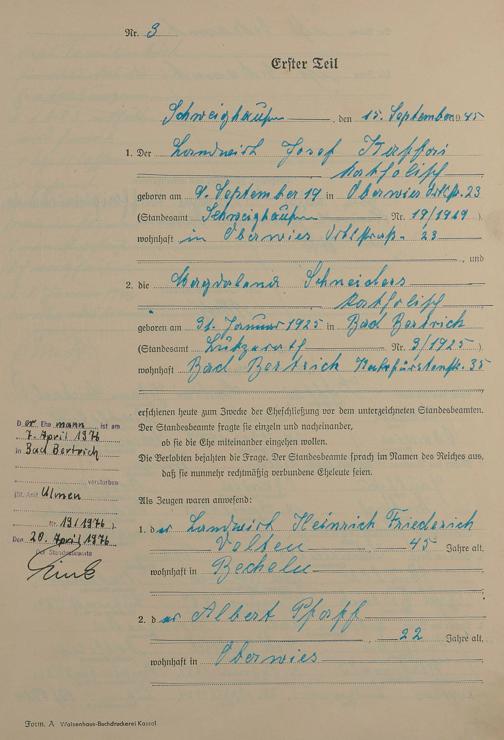 Nr. 3
Erster Teil
Schweighausen, den 15. September 1945
1. Der Landwirt Josef
katholisch
geboren am 9. September 19 in Oberwies Ortsstr. 23
(Standesamt Schweighausen Nr. 18/1919.)
wohnhaft in Oberwies Ortsstraße 23
, und
2. die Magdalena Schneiders
katholisch
geboren am 31. Januar 1925 in Bad Bertrich
(Standesamt Lutzerath Nr. 3/1925.)
wohnhaft Bad Bertrich Kurfürstenstr. 35
erschienen heute zum Zwecke der Eheschließung vor dem unterzeichneten Standesbeamten.
Der Standesbeamte fragte sie einzeln und nacheinander,
ob sie die Ehe miteinander eingehen wollen.
Die Verlobten bejahten die Frage. Der Standesbeamte sprach im Namen des Reiches aus,
daß sie nunmehr rechtmäßig verbundene Eheleute seien.
Der Ehemann ist am
7. April 1976
in Bad Bertrich
verstorben
(St. Amt Ulmen
Nr. 19/1976)
Den 20. April 1976
Der Standesbeamte
Als Zeugen waren anwesend:
1. der Landwirt Heinrich Friederich
Velten, 45 Jahre alt,
wohnhaft in Becheln
2. der Albert Pfaff
, 22 Jahre alt,
wohnhaft in Oberwies
Form. A Waisenhaus-Buchdruckerei Kassel